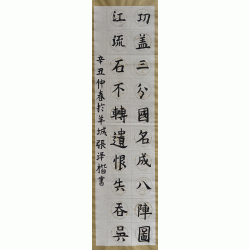 功盖三分國名成八陣圖
江流石不轉遺恨失吞吳
辛丑仲春於羊城張洋楷書